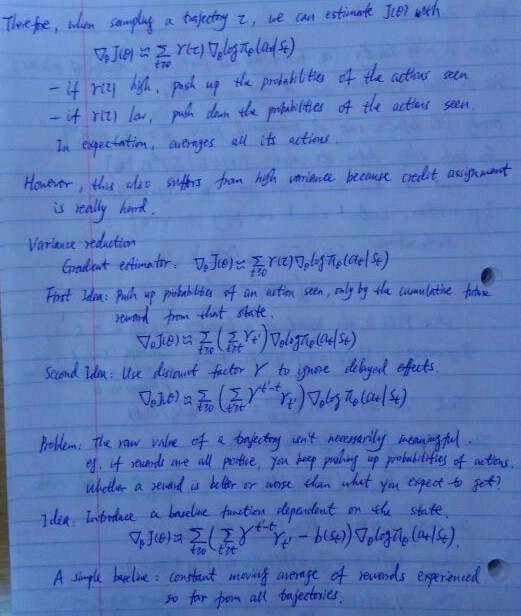 Therefore, when sampling a trajectory τ, we can estimate J(θ) with
∇θJ(θ) ≈ Σ_{t≥0} r(τ) ∇θ log πθ(at|st)
- if r(τ) high, push up the probabilities of the actions seen
- if r(τ) low, push down the probabilities of the actions seen.
In expectation, averages all its actions.
However, this also suffers from high variance because credit assignment
is really hard.
Variance reduction
Gradient estimator: ∇θJ(θ) ≈ Σ_{t≥0} r(τ) ∇θ log πθ(at|st)
First Idea: Push up probabilities of an action seen, only by the cumulative future
reward from that state.
∇θJ(θ) ≈ Σ_{t≥0} (Σ_{t'≥t} r_{t'}) ∇θ log πθ(at|st)
Second Idea: Use discount factor γ to ignore delayed effects.
∇θJ(θ) ≈ Σ_{t≥0} (Σ_{t'≥t} γ^{t'-t} r_{t'}) ∇θ log πθ(at|st)
Problem: The raw value of a trajectory isn't necessarily meaningful.
eg. if rewards are all positive, you keep pushing up probabilities of actions.
Whether a reward is better or worse than what you expect to get?
Idea: Introduce a baseline function dependent on the state.
∇θJ(θ) ≈ Σ_{t≥0} (Σ_{t'≥t} γ^{t'-t} r_{t'} - b(st)) ∇θ log πθ(at|st).
A simple baseline: constant moving average of rewards experienced
so far from all trajectories.